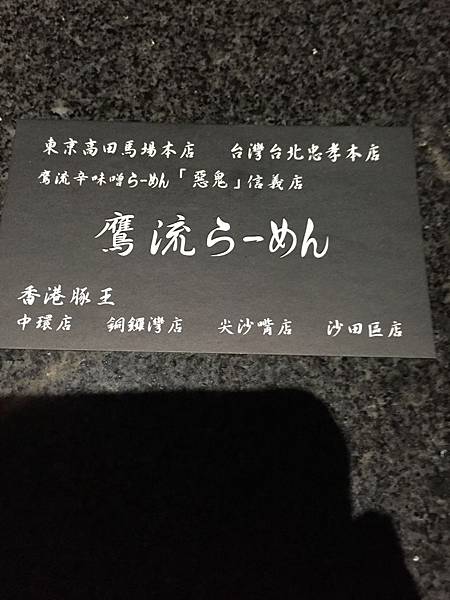 東京高田馬場本店 台灣台北忠孝本店
鷹流辛味噌らーめん「惡鬼」信義店
鷹流らーめん
香港豚王
中環店 銅鑼灣店 尖沙嘴店 沙田區店